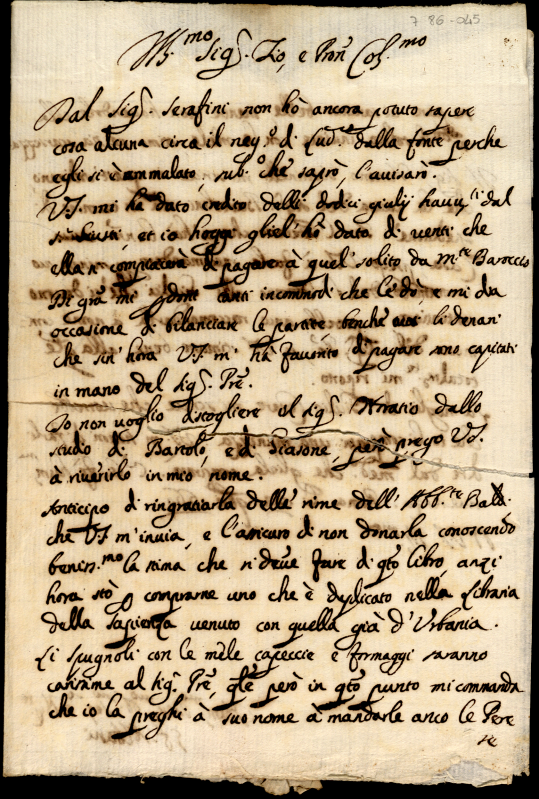 7 86-045
Ill.mo Sig.r Zio, e Pron Col.mo
Dal Sig.r Serafini non hò ancora potuto sapere
cosa alcuna circa il neg.o di Lud.co dalla fonte perche
egli si è ammalato, sub.o che saprò, l'avisarò.
V.S. mi ha dato credito delli dodici giulij havuti dal
s.r Giusti, et io hoggi gliel'hò dato di venti che
ella si compiacerà di pagare à quel solito da m.te Baroccio
Di gra mi perdoni tanti incommodi che le dò, e mi dia
occasione di bilanciare le partite, benche li denari
che sin'hora V.S. m'hà favorito di pagare sono capitati
in mano del sig.r Pre.
Io non voglio distogliere il sig.r Horatio dallo
studio di Bartolo, e di Giasone, però prego V.S.
à riverirlo in mio nome.
Anticipo di ringratiarla delle rime dell'Abb.te
che V.S. m'invia, e l'assicuro di non donarla conoscendo
beniss.mo la stima che si deve fare di qto libro, anzi
hora stò p comprarne uno che è duplicato nella Libraria
della Sapienza venuto con quella già d'Urbania.
Li spugnoli con le mele caseccie e formaggi saranno
carissime al sig.r Pre, qle però in qto punto mi commanda
che io la preghi à suo nome à mandarle anco le Pere